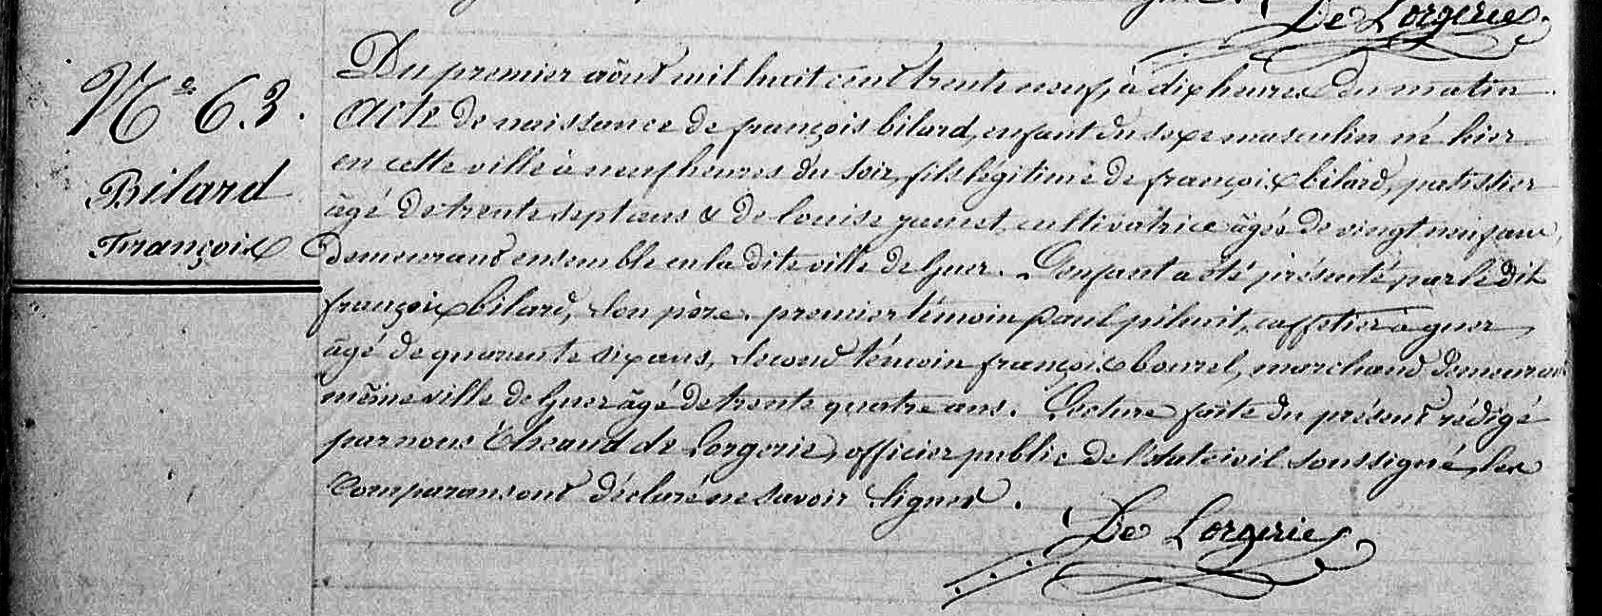 De Lorgerie
N.o 63.
Bilard
François
Du premier août mil huit cent trente neuf, à dix heures du matin.
Acte de naissance de françois bilard, enfant du sexe masculin né hier
en cette ville à neuf heures du soir, fils légitime de françois bilard, patissier
âgé de trente sept ans & de louise jamet, cultivatrice âgée de vingt neuf ans,
demeurant ensemble en la dite ville de Guer. L'enfant a été présenté par le dit
françois bilard, son père. premier témoin paul, caffetier à guer,
âgé de quarante six ans, second témoin françois bourel, marchand demeurant
même ville de Guer âgé de trente quatre ans. Lecture faite du présent rédigé
par nous de Lorgerie, officier public de l'état civil soussigné, les
comparans ont déclaré ne savoir signer.
De Lorgerie